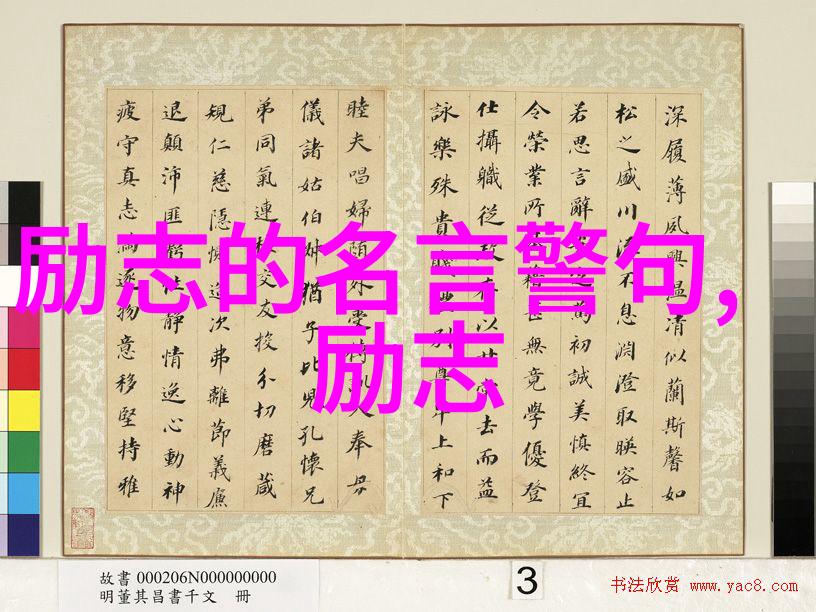 深履薄夙興溫清似蘭斯馨如
松之盛川流不息淵澄取暎容止
若思言辭篤初誠美慎終宜
令榮業所籍甚無竟學優登
仕攝職從政存以甘去而益
詠樂殊貴賤別尊卑上和下
睦夫唱婦隨外受入奉母
儀諸姑伯叔猶子比兒孔懷兄
弟同氣連枝交友投分切磨箴
規仁慈隱惻造次弗離節義廉
退顛沛匪虧性靜情逸心動神
疲守真志滿逐物意移堅持雅
励志的名言警句,
励志
故書 000206N000000000
明董其昌書千文 冊
3
书法欣赏 www.yac8.com